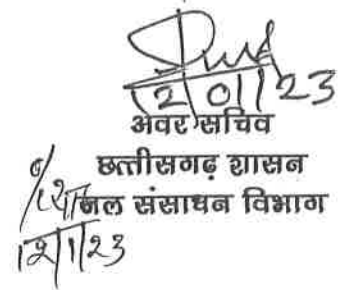 12/01/23
अवर सचिव
छत्तीसगढ़ शासन
जल संसाधन विभाग
12/1/23